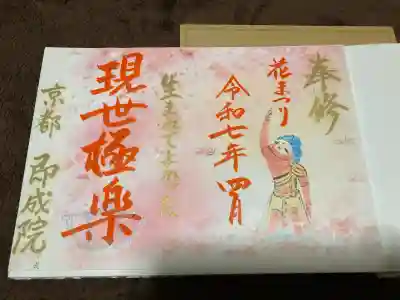 奉修
花まつり
令和七年四月
生まれてよかったね
現世極楽
京都 即成院